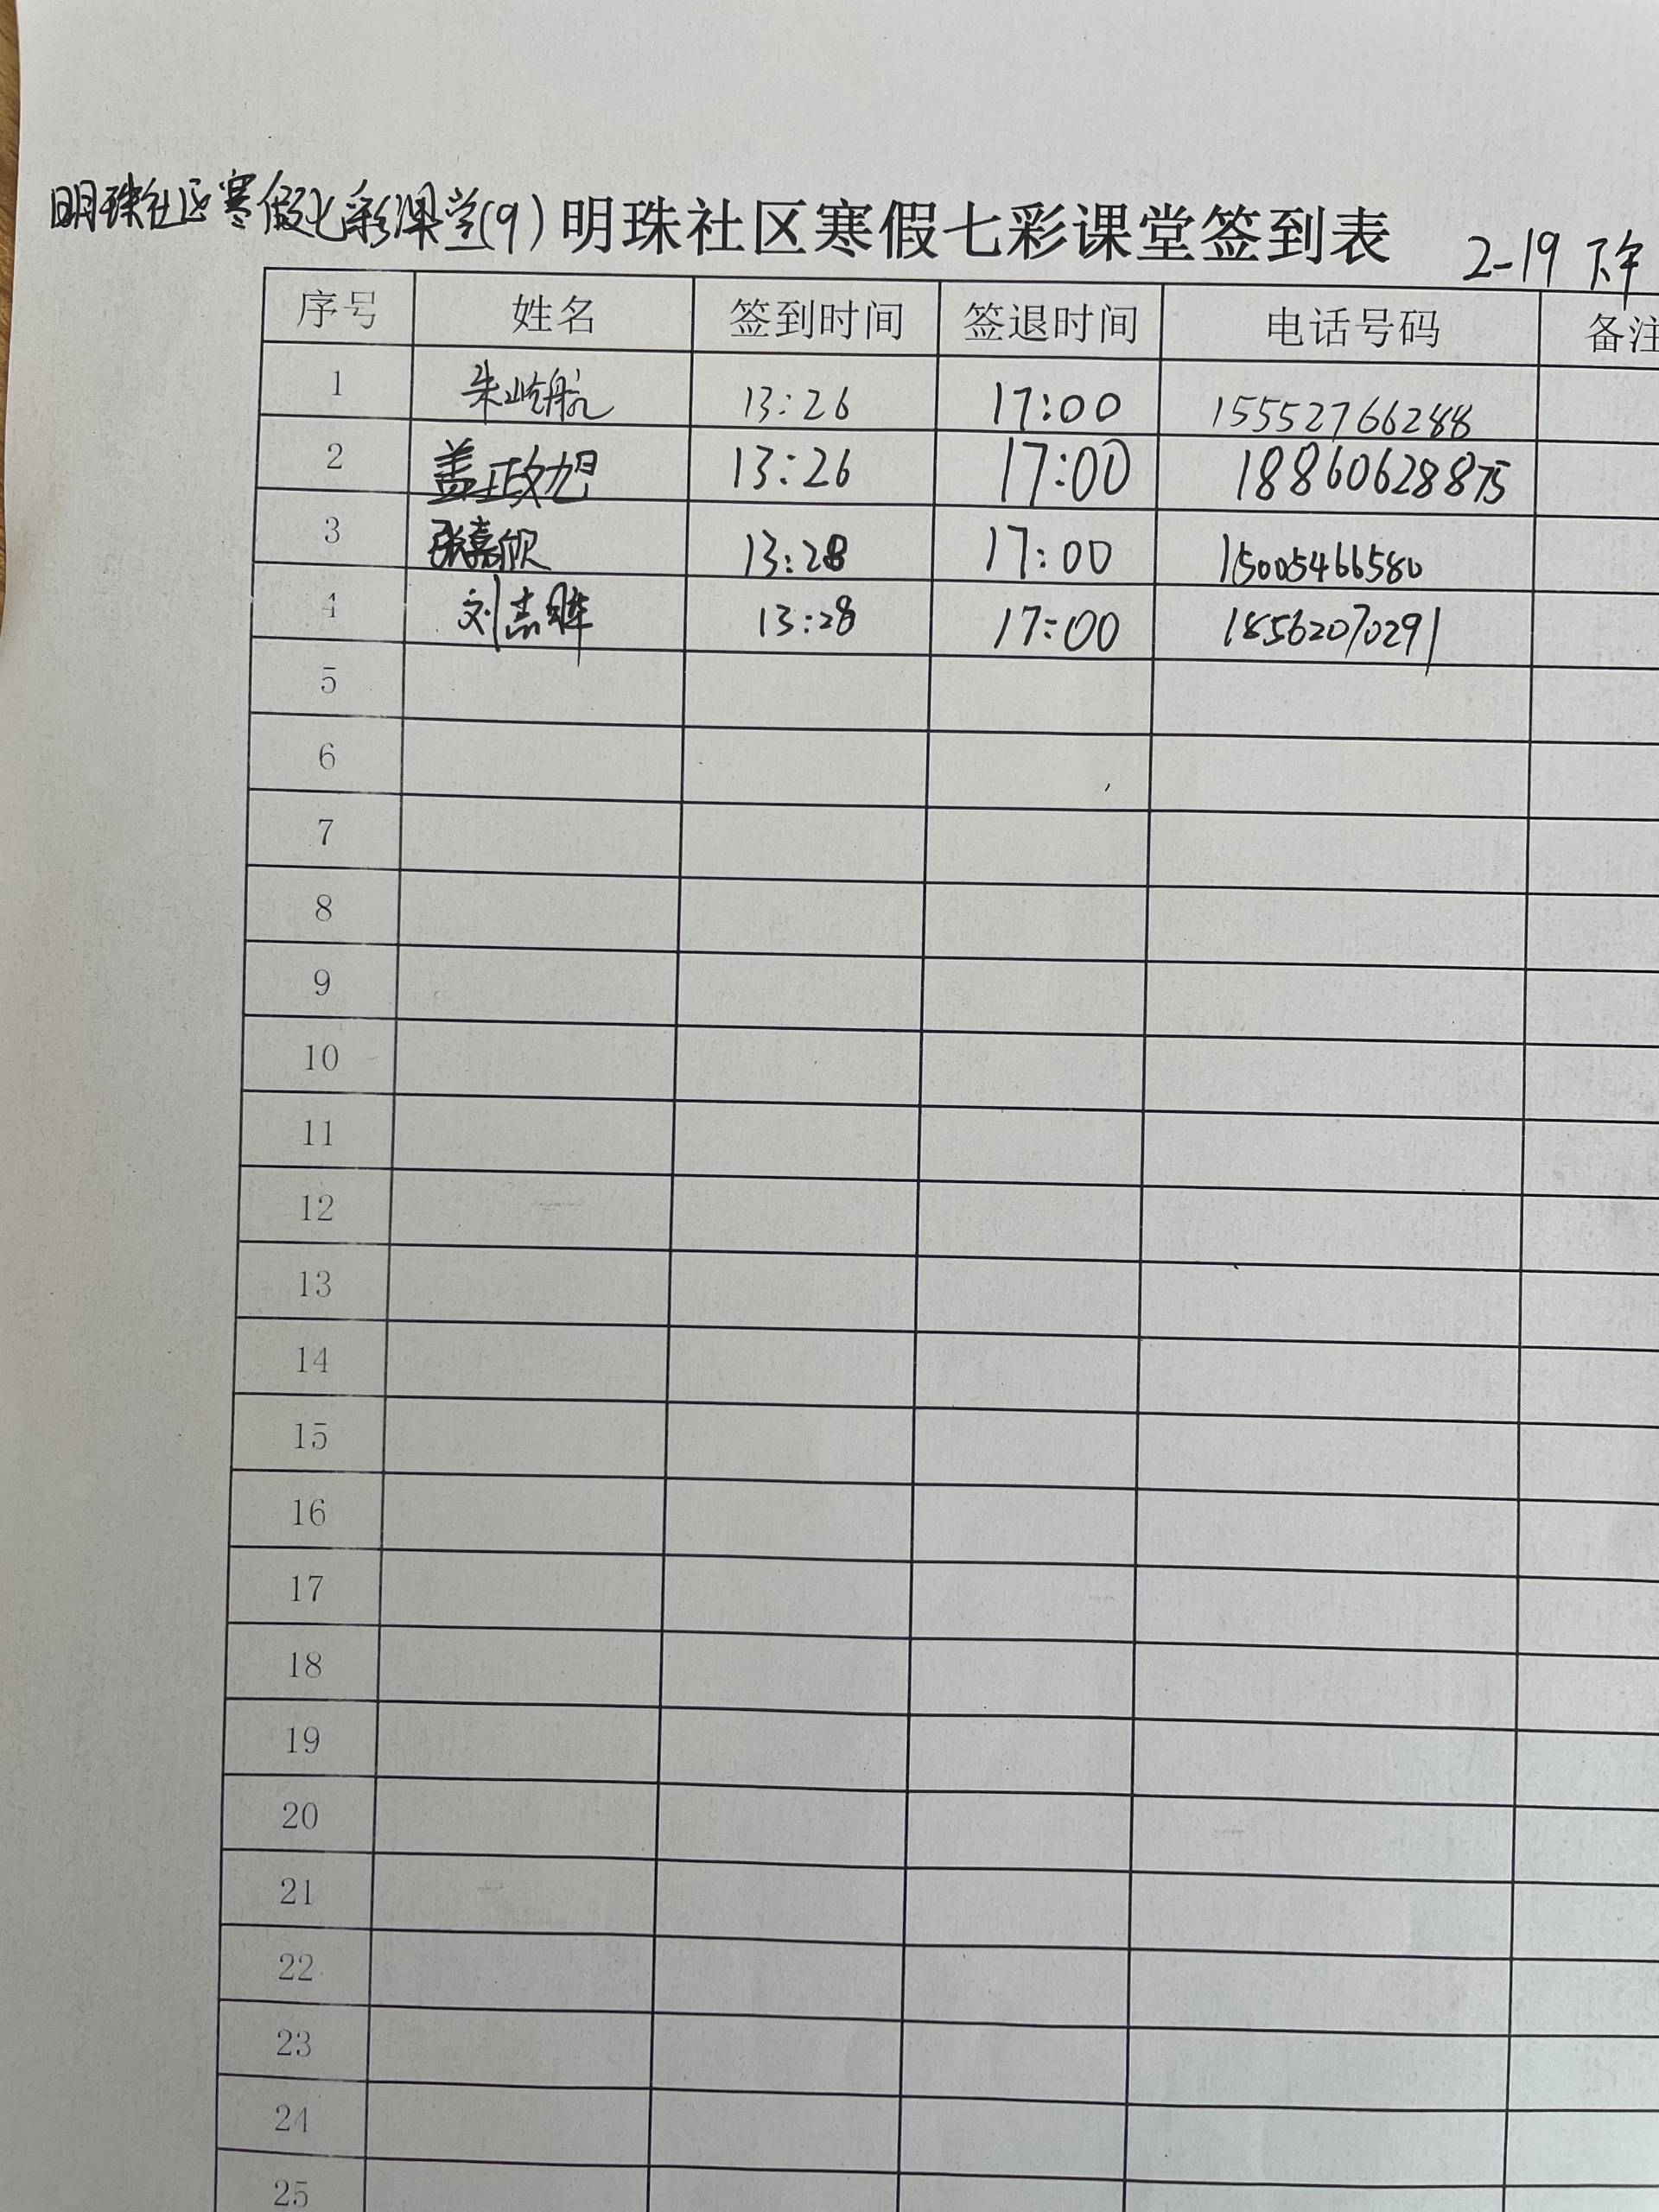 明珠社区寒假七彩课堂(9) 明珠社区寒假七彩课堂签到表 2-19 下午
序号 姓名 签到时间 签退时间 电话号码 备注
1 朱屹航 13:26 17:00 15552766288
2 盖政旭 13:26 17:00 18860628875
3 张嘉欣 13:28 17:00 15005466580
4 刘志 13:28 17:00 18562070291
5
6
7
8
9
10
11
12
13
14
15
16
17
18
19
20
21
22
23
24
25